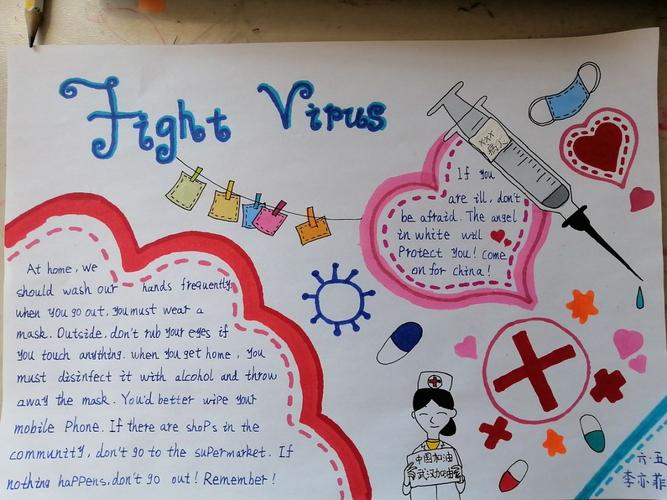 Fight Virus
xxx
病人
If you
are ill, don't
be afraid. The angel
in white will
Protect you! come
on for china!
At home, we
should wash our hands frequently.
when you go out, you must wear a
mask. Outside, don't rub your eyes if
you touch anything. when you get home, you
must disinfect it with alcohol and throw
away the mask. You'd better wipe your
mobile Phone. If there are shops in the
community, don't go to the supermarket. If
nothing happens, don't go out! Remember!
中国加油
武汉加油
六.五
李亦菲